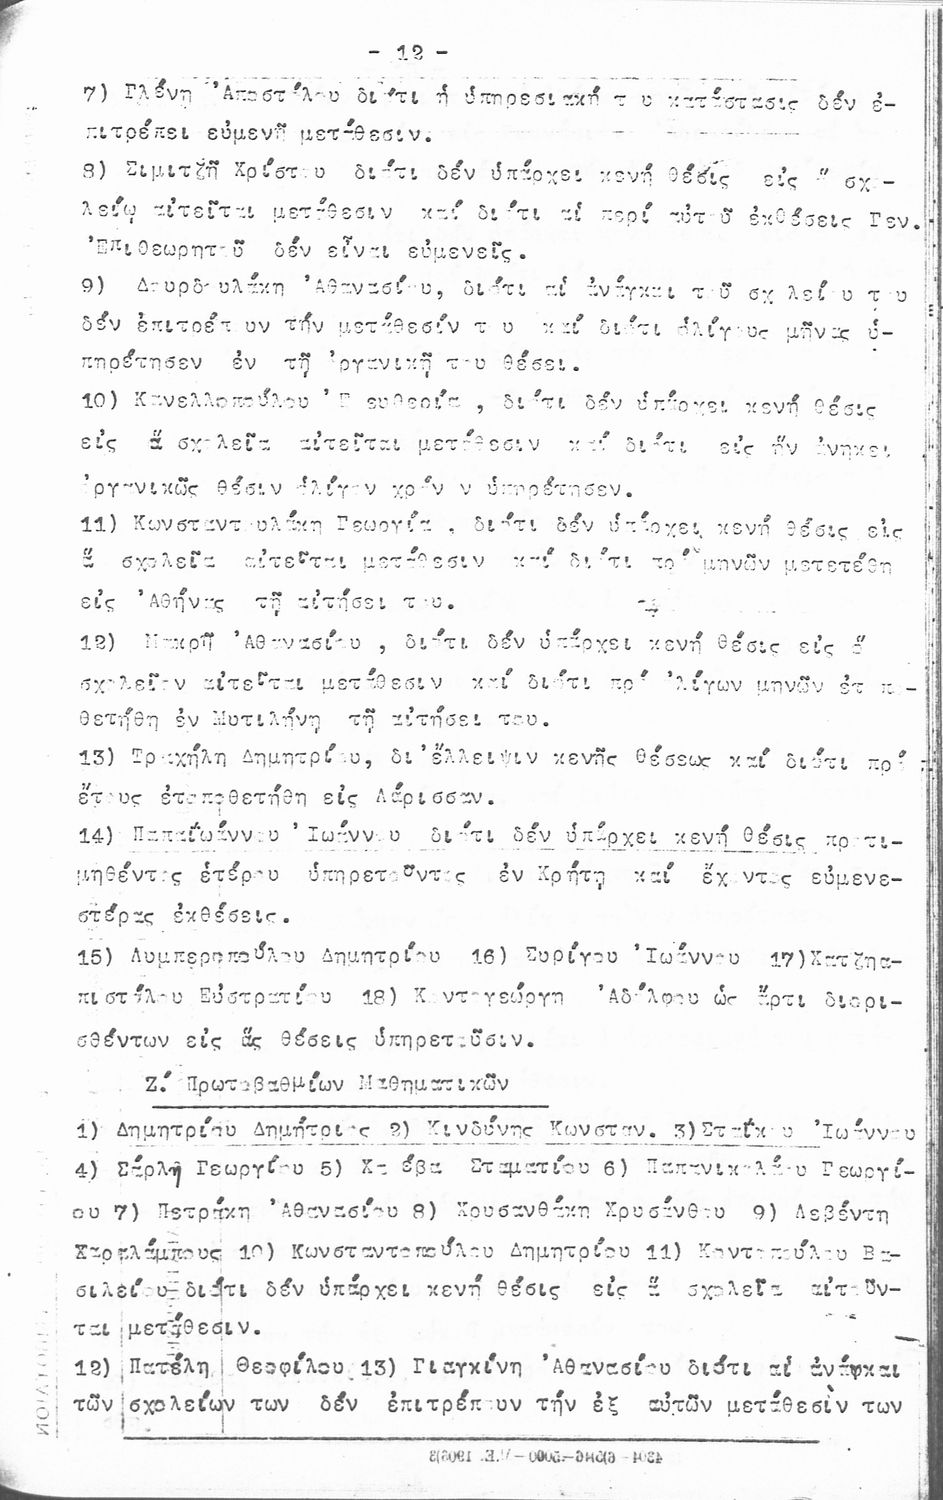 - 12 -
7) Γλένη Ἀποστόλου διότι ἡ ὑπηρεσιακή του κατάστασις δέν ἐ-
πιτρέπει εὐμενῆ μετάθεσιν.
8) Σιμιτζῆ Χρίστου διότι δέν ὑπάρχει κενή θέσις εἰς ὅ σχο-
λείῳ αἰτεῖται μετάθεσιν καί διότι αἱ περί αὐτοῦ ἐκθέσεις Γεν.
Ἐπιθεωρητοῦ δέν εἶναι εὐμενεῖς.
9) Δουρδουλάκη Ἀθανασίου, διότι αἱ ἀνάγκαι τοῦ σχολείου του
δέν ἐπιτρέπουν τήν μετάθεσίν του καί διότι ὀλίγους μῆνας ὑ-
πηρέτησεν ἐν τῇ ὀργανικῇ του θέσει.
10) Κανελλοπούλου Ἐλευθερία , διότι δέν ὑπάρχει κενή θέσις
εἰς ἅ σχολεῖα αἰτεῖται μετάθεσιν καί διότι εἰς ἥν ἀνήκει
ὀργανικῶς θέσιν ὀλίγον χρόνον ὑπηρέτησεν.
11) Κωνσταντουλάκη Γεωργία , διότι δέν ὑπάρχει κενή θέσις εἰς
ἅ σχολεῖα αἰτεῖται μετάθεσιν καί διότι πρό μηνῶν μετετέθη
εἰς Ἀθήνας τῇ αἰτήσει του.
12) Μακρῆ Ἀθανασίου , διότι δέν ὑπάρχει κενή θέσις εἰς ὅ
σχολεῖον αἰτεῖται μετάθεσιν καί διότι πρό ὀλίγων μηνῶν ἐτοπο-
θετήθη ἐν Μυτιλήνῃ τῇ αἰτήσει του.
13) Τραχήλη Δημητρίου, δι' ἔλλειψιν κενῆς θέσεως καί διότι πρό
ἔτους ἐτοποθετήθη εἰς Λάρισσαν.
14) Παπαϊωάννου Ἰωάννου διότι δέν ὑπάρχει κενή θέσις προτι-
μηθέντος ἑτέρου ὑπηρετοῦντος ἐν Κρήτῃ καί ἔχοντος εὐμενε-
στέρας ἐκθέσεις.
15) Λυμπεροπούλου Δημητρίου 16) Συρίγου Ἰωάννου 17)Χατζηα-
πιστόλου Εὐστρατίου 18) Κοντογεώργη Ἀδόλφου ὡς ἄρτι διορι-
σθέντων εἰς ἅς θέσεις ὑπηρετοῦσιν.
Ζ.΄ Πρωτοβαθμίων Μαθηματικῶν
1) Δημητρίου Δημήτριος 2) Κινδύνης Κωνσταν. 3)Σταΐκου Ἰωάννου
4) Σάρλη Γεωργίου 5) Χα έβα Σταματίου 6) Παπανικολάου Γεωργί-
ου 7) Πετράκη Ἀθανασίου 8) Χρυσανθάκη Χρυσάνθου 9) Λεβέντη
Χαραλάμπους 10) Κωνσταντοπούλου Δημητρίου 11) Κοντοπούλου Βα-
σιλείου διότι δέν ὑπάρχει κενή θέσις εἰς ἅ σχολεῖα αἰτοῦν-
ται μετάθεσιν.
12) Πατέλη Θεοφίλου 13) Γιαγκίνη Ἀθανασίου διότι αἱ ἀνάγκαι
τῶν σχολείων των δέν ἐπιτρέπουν τήν ἐξ αὐτῶν μετάθεσίν των